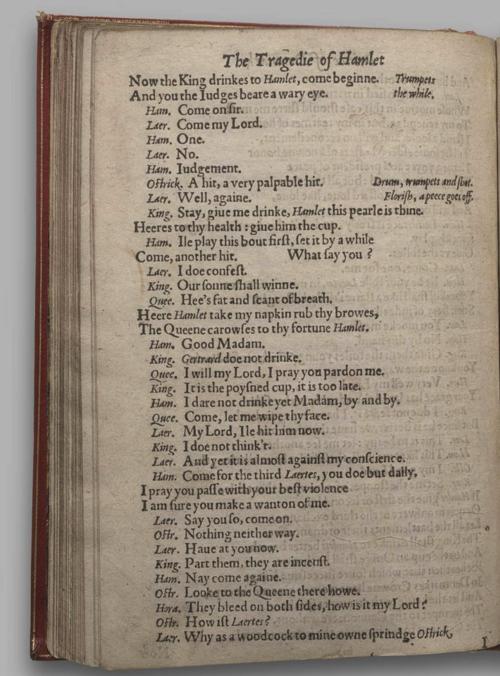 The Tragedie of Hamlet
Now the King drinkes to Hamlet, come beginne. Trumpets
And you the Iudges beare a wary eye. the while.
Ham. Come on sir.
Laer. Come my Lord.
Ham. One.
Laer. No.
Ham. Iudgement.
Ostrick. A hit, a very palpable hit. Drum, trumpets and shot.
Laer. Well, againe. Florish, a peece goes off.
King. Stay, giue me drinke, Hamlet this pearle is thine.
Heeres to thy health : giue him the cup.
Ham. Ile play this bout first, set it by a while
Come, another hit. What say you ?
Laer. I doe confest.
King. Our sonne shall winne.
Quee. Hee's fat and scant of breath.
Heere Hamlet take my napkin rub thy browes,
The Queene carowses to thy fortune Hamlet.
Ham. Good Madam.
King. Gertrard doe not drinke.
Quee. I will my Lord, I pray you pardon me.
King. It is the poysned cup, it is too late.
Ham. I dare not drinke yet Madam, by and by.
Quee. Come, let me wipe thy face.
Laer. My Lord, Ile hit him now.
King. I doe not think't.
Laer. And yet it is almost against my conscience.
Ham. Come for the third Laertes, you doe but dally.
I pray you passe with your best violence
I am sure you make a wanton of me.
Laer. Say you so, come on.
Ostr. Nothing neither way.
Laer. Haue at you now.
King. Part them, they are incenst.
Ham. Nay come againe.
Ostr. Looke to the Queene there howe.
Hora. They bleed on both sides, how is it my Lord ?
Ostr. How ist Laertes ?
Laer. Why as a woodcock to mine owne sprindge Ostrick,